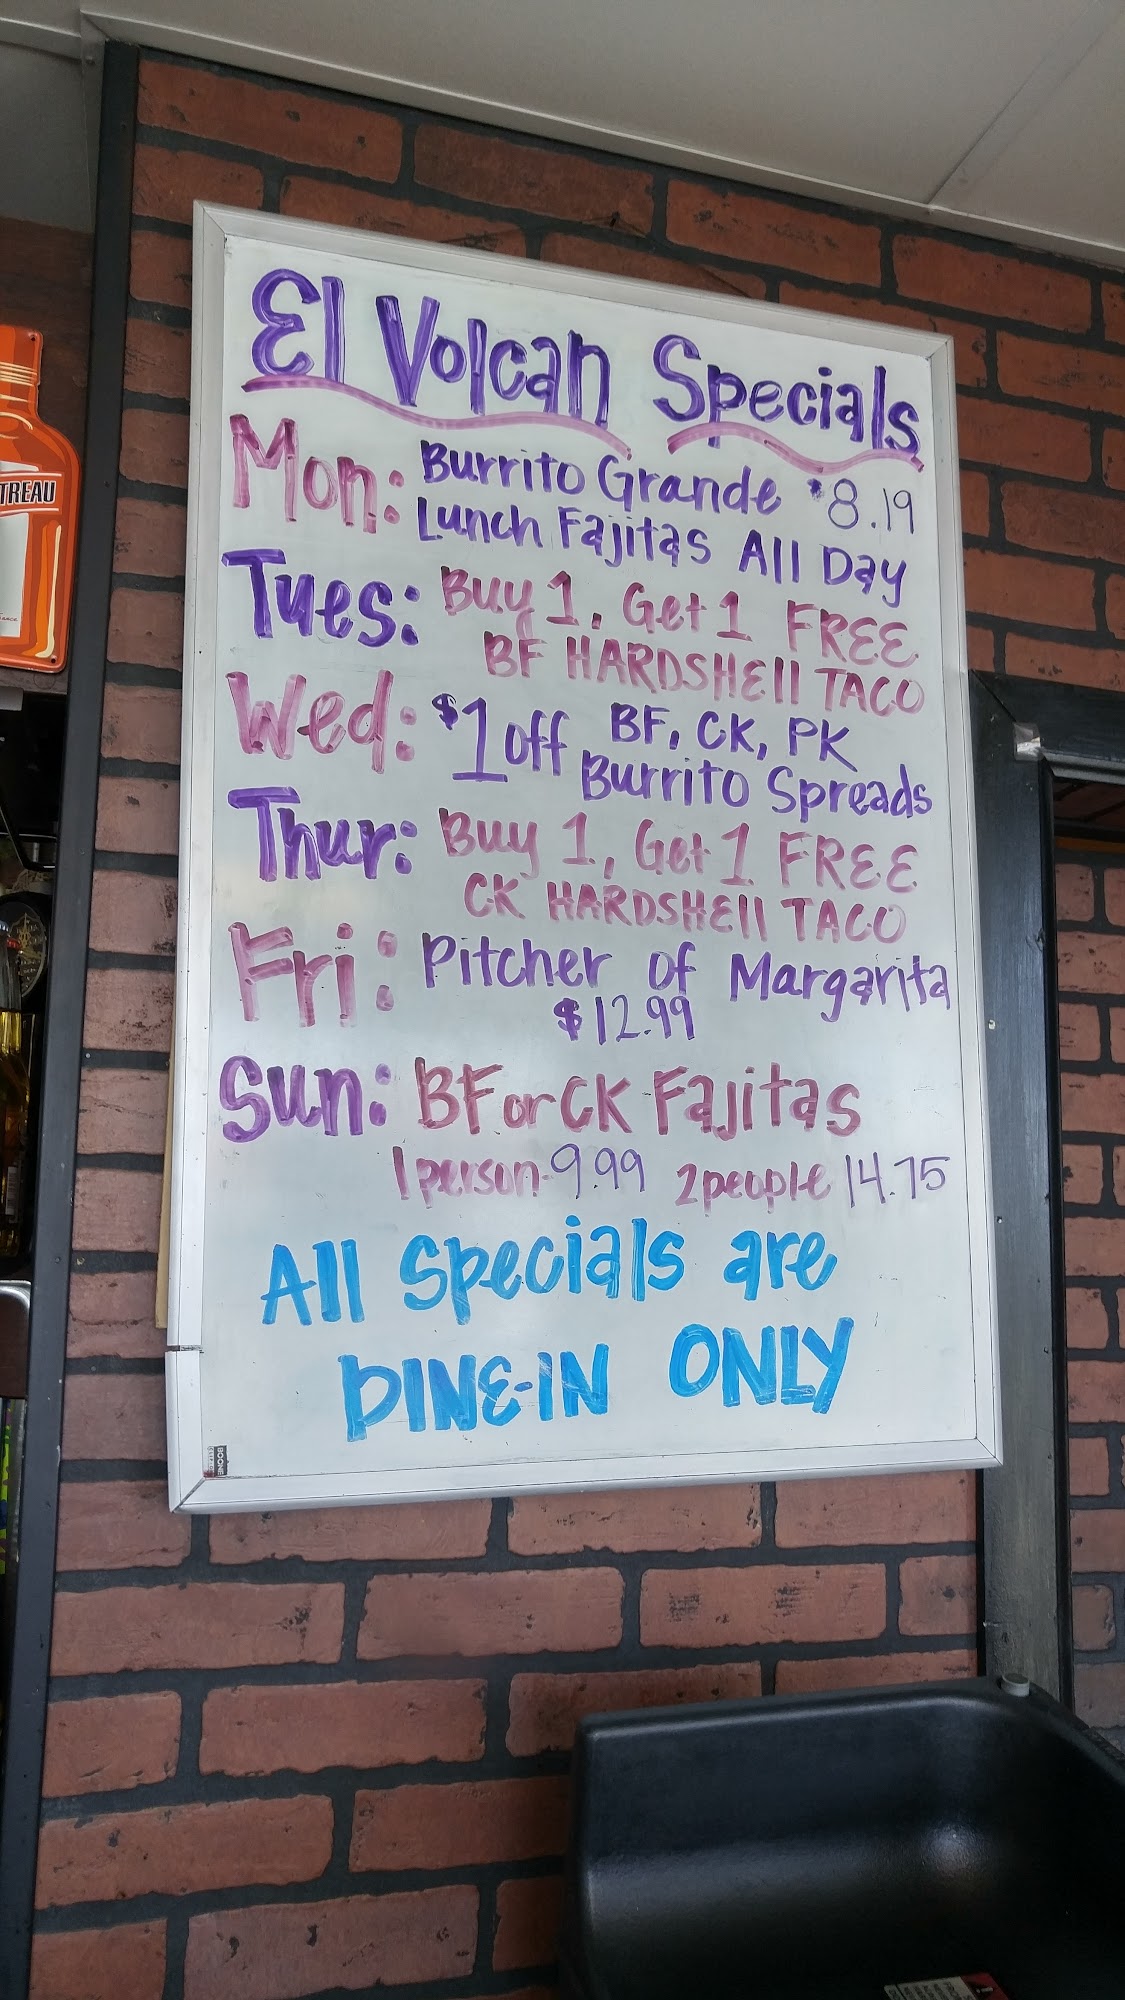 El Volcan Specials
Mon: Burrito Grande $8.19
Lunch Fajitas All Day
Tues: Buy 1, Get 1 FREE
BF HARDSHEll TACO
Wed: $1 off BF, CK, PK
Burrito Spreads
Thur: Buy 1, Get 1 FREE
CK HARDSHEll TACO
Fri: Pitcher of Margarita
$12.99
Sun: BF or CK Fajitas
1 person- 9.99 2 people 14.75
All Specials are
DINE-IN ONLY
BOONE
TREAU